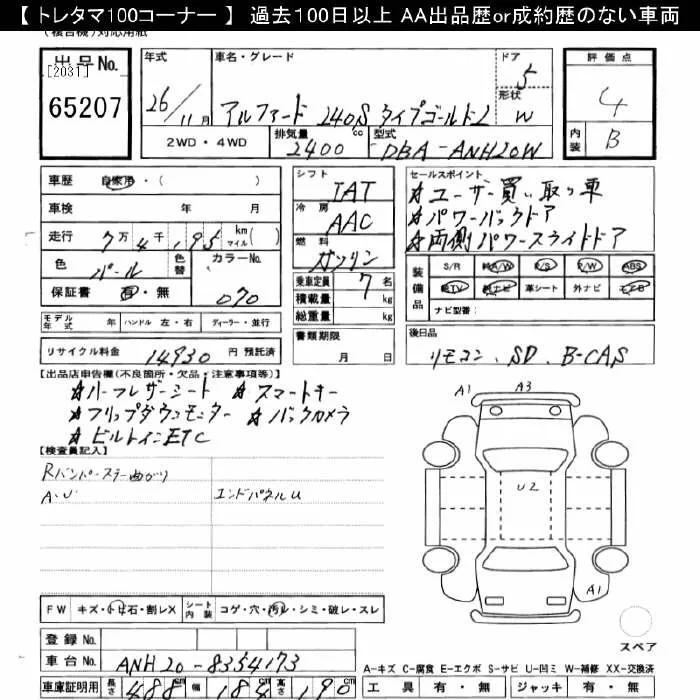 【 トレタマ100コーナー 】 過去100日以上 AA出品歴or成約歴のない車両
(複合機)対応用紙
出品No.
[2031]
65207
年式
26/11月
車名・グレード
アルファード 240S タイプゴールドⅡ
ドア
5
形状
W
2WD・4WD
排気量
2400cc
型式
DBA-ANH20W
評価点
4
内装
B
車歴 自家用・( )
車検 年 月
走行 7万4千195 km マイル( )
色 パール 色替 カラーNo. 070
保証書 有・無
シフト
IAT
冷房
AAC
燃料
ガソリン
乗車定員 7名
積載量 kg
総重量 kg
セールスポイント
★ユーザー買い取り車
★パワーバックドア
★両側パワースライドドア
装備品
S/R A/W P/S P/W ABS
純TV 純ナビ 革シート 外ナビ エアB
ナビ型番:
モデル年式 年 ハンドル 左・右 ディーラー・並行
リサイクル料金 14930 円 預託済
書類期限
月 日
後日品
リモコン、SD、B-CAS
【出品店申告欄(不良箇所・欠品・注意事項等)】
★ハーフレザーシート ★スマートキー
★フリップダウンモニター ★バックカメラ
★ビルトインETC
【検査員記入】
Rバンパーステー曲がり
A.U
エンドパネルU
A1
A3
U2
A1
FW キズ・小・飛石・割レX シート内装 コゲ・穴・汚レ・シミ・破レ・スレ
スペア
登録No.
車台No. ANH20-8354173
A-キズ C-腐食 E-エクボ S-サビ U-凹ミ W-補修 XX-交換済
車庫証明用 長さ 488cm 幅 184cm 高さ 190cm
工具 有・無 ジャッキ 有・無